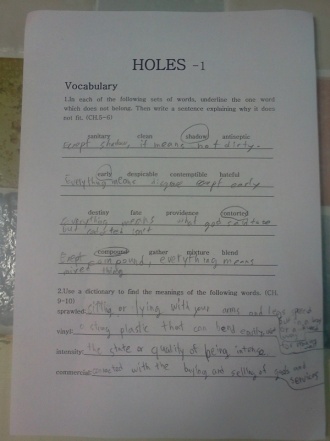 HOLES -1
Vocabulary
1.In each of the following sets of words, underline the one word
which does not belong. Then write a sentence explaining why it does
not fit. (CH.5~6)
sanitary clean shadow antiseptic
except shadow, it means not dirty.
curly despicable contemptible hateful
Everything means except curly
destiny fate providence contorted
everything
but
compound gather mixture blend
Except compound, everything means
mixed
2.Use a dictionary to find the meanings of the following words. (CH.
9-10)
sprawled: sitting or lying with your arms and legs
vinyl: a strong plastic that can bend easily
intensity: the state or quality of being intense
commercial: connected with the buying and selling of goods and
services